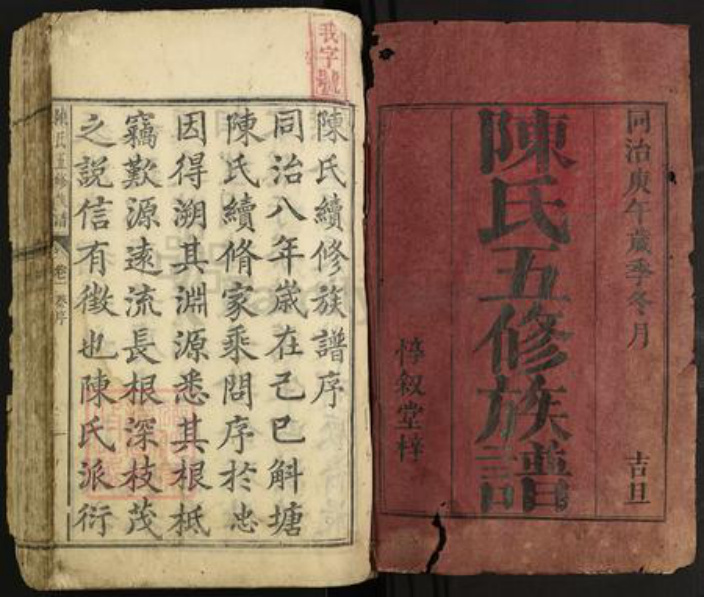 同治庚午歲季冬月 吉旦
陳氏五修族譜
惇叙堂梓
我字號
陳氏續修族譜序
同治八年歲在己巳斛塘
陳氏續脩家乘問序於忠
因得溯其淵源悉其根柢
竊歎源遠流長根深枝茂
之說信有徵也陳氏派衍
陳氏五修族譜 卷一 卷序